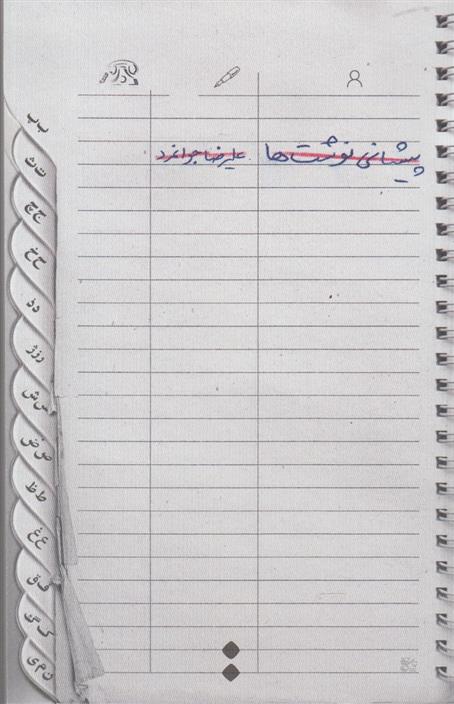 پیشانی‌نوشت‌ها
علیرضا جوانمرد
ب پ
ت ث
ج چ
ح خ
د ذ
ر ز ژ
س ش
ص ض
ط ظ
ع غ
ف ق
ک گ
ن م ی